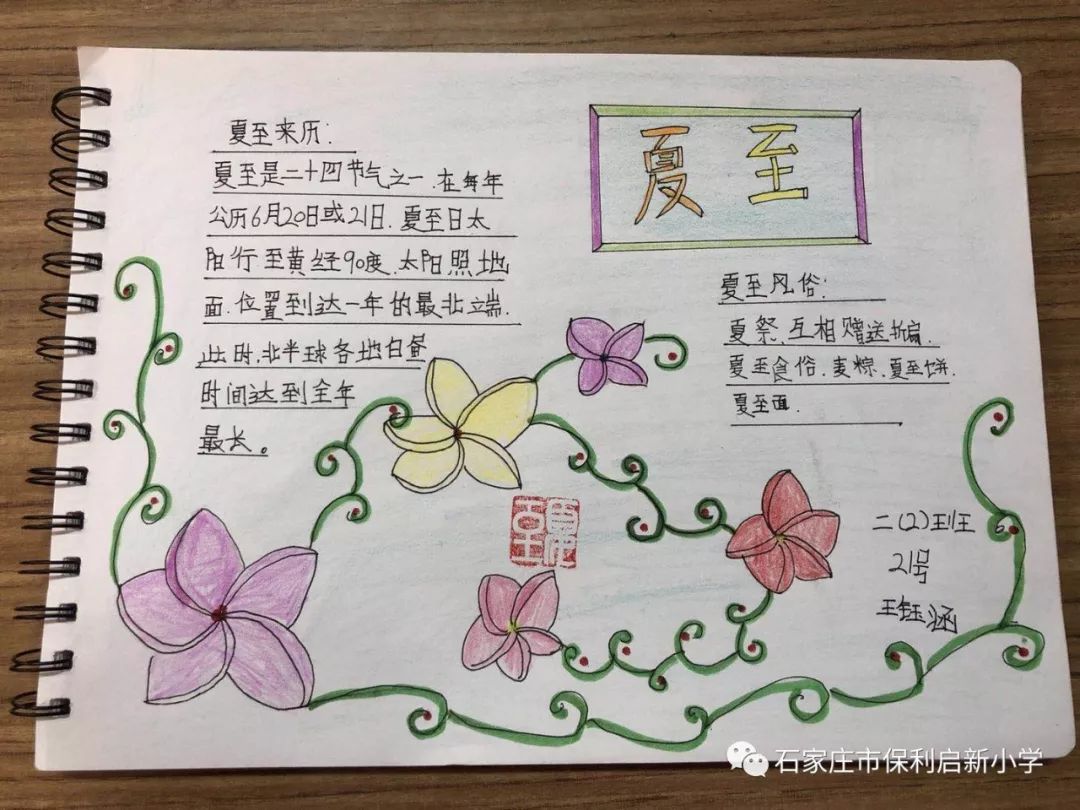 夏至来历:
夏至是二十四节气之一.在每年
公历6月20日或21日.夏至日太
阳行至黄经90度.太阳照地
面.位置到达一年的最北端.
此时,北半球各地白昼
时间达到全年
最长。
夏至
夏至风俗:
夏祭.互相赠送折扇.
夏至食俗.麦粽.夏至饼.
夏至面.
二(2)班
21号
王钰涵
石家庄市保利启新小学